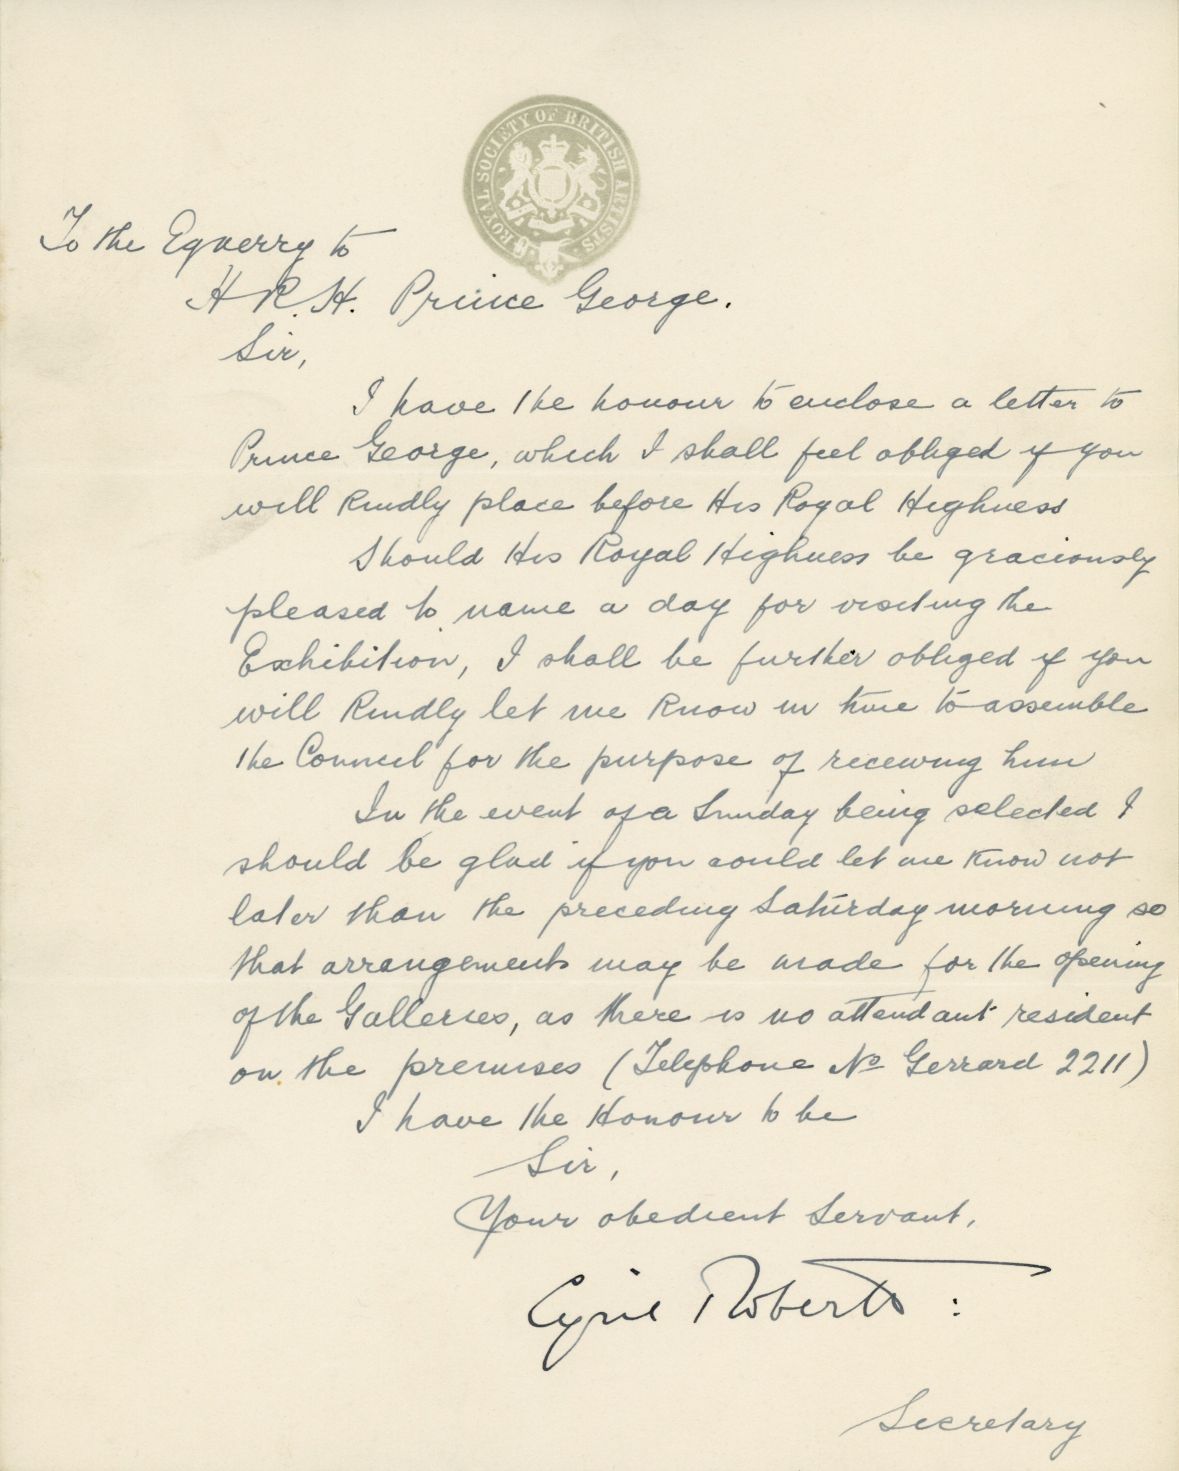 ROYAL SOCIETY OF BRITISH ARTISTS
To the Equerry to
H R.H. Prince George.
Sir,
I have the honour to enclose a letter to
Prince George, which I shall feel obliged if you
will kindly place before His Royal Highness
Should His Royal Highness be graciously
pleased to name a day for visiting the
Exhibition, I shall be further obliged if you
will kindly let me know in time to assemble
the Council for the purpose of receiving him
In the event of a Sunday being selected I
should be glad if you could let me know not
later than the preceding Saturday morning so
that arrangements may be made for the opening
of the Galleries, as there is no attendant resident
on the premises (Telephone No Gerrard 2211)
I have the Honour to be
Sir,
Your obedient Servant,
Cyril Roberts :
Secretary